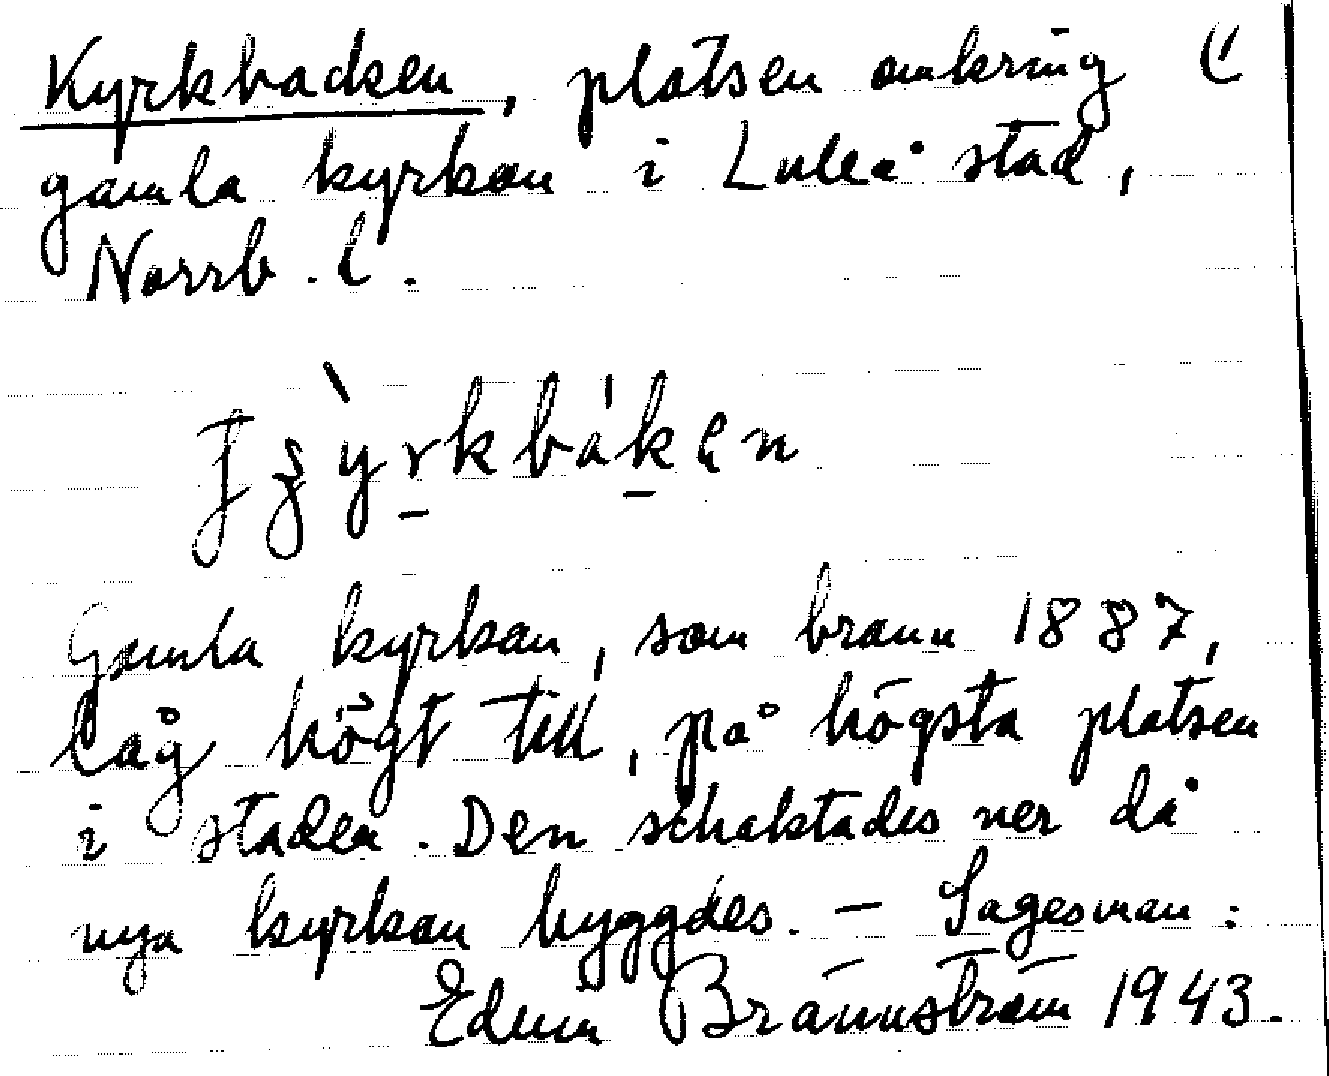 Kyrkbacken, platsen omkring
gamla kyrkan i Luleå stad,
Norrb. l.
Gamla kyrkan, som brann 1887,
låg högt till, på högsta platsen
i staden. Den schaktades ner då
nya kyrkan byggdes. – Sagesman:
Edvin Brännström 1943.